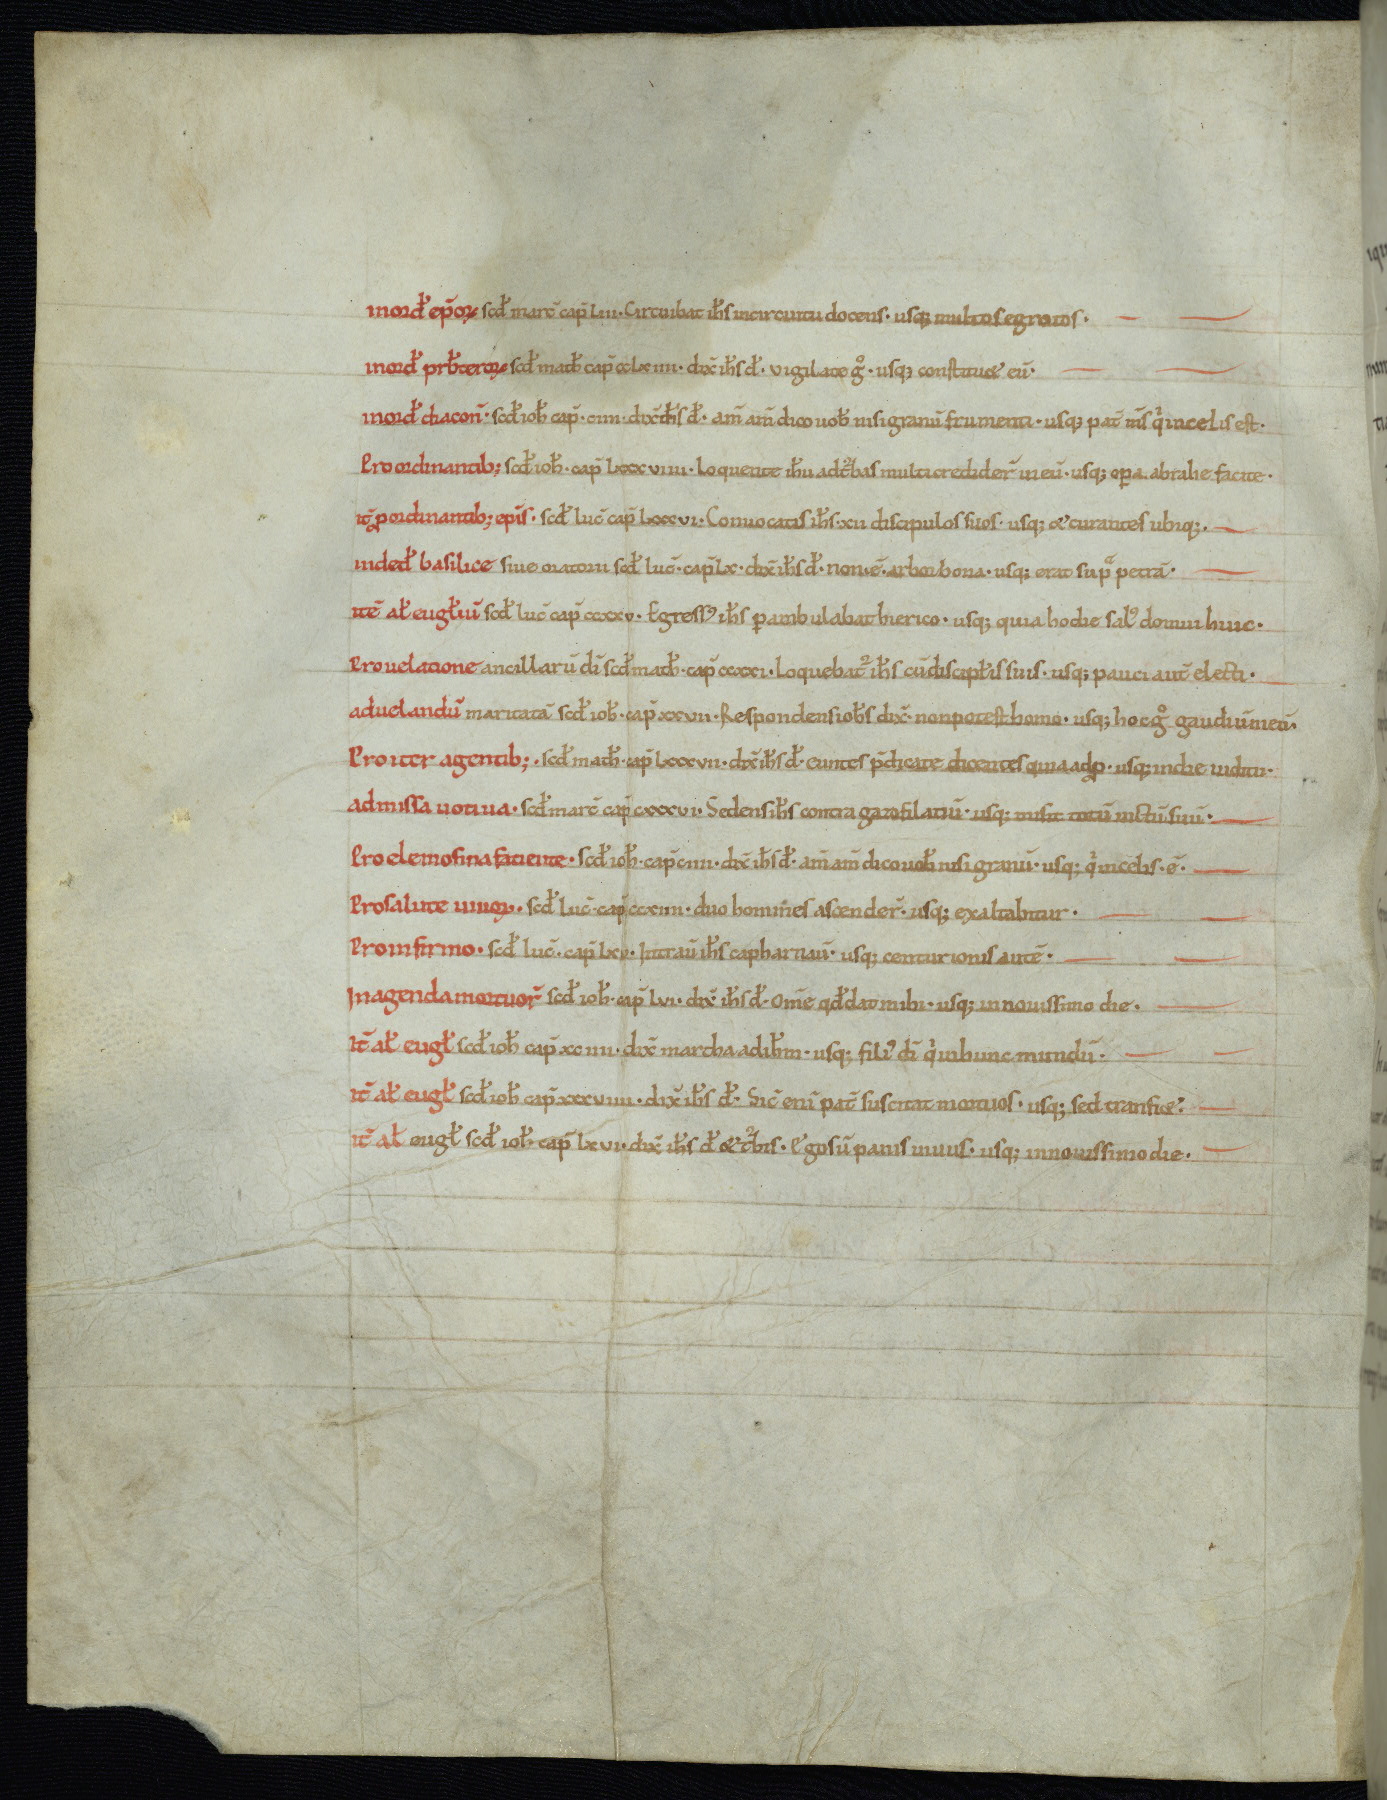 inord̄ ep̄oꝝ scd̄ marc̄ cap̄ Liii· Circuibat ih̄s incircuitu docens· usq; multos egrotos·
inord̄ prb̄iteroꝝ scd̄ math̄ cap̄ cclxiiii· dix̄ ih̄s d̄· vigilate g̊· usq; constituet eū·
inord̄ diacon̄· scd̄ ioh̄ cap̄· ciiii· dix̄ ih̄s d̄· am̄ am̄ dico uob̄ nisi granū frumenti· usq; pat̄ m̄s q̇ incelis est·
Pro ordinantib; scd̄ ioh̄· cap̄ lxxxviiii· Loquente ih̄u ad multi credider̄ in eū· usq; oꝑa abrahe facite·
it̄ ꝓordinantib; ep̄is· scd̄ luc̄ cap̄ lxxxvi· Conuocatis ih̄s· xii discipulos suos· usq; et curantes ubiq;·
inded̄ basilice siue oratorii scd̄ luc̄· cap̄ lx· dix̄ ih̄s d̄· non·ē· arbor bona· usq; erat sup̄ petrā·
itē al̄ eugl̄iū scd̄ luc̄ cap̄ ccxxv· Egress᾽ ih̄s ꝑambulabat hierico· usq; quia hodie sal᾽ domui huic·
Pro uelatione ancillarū dī scd̄ math̄· cap̄ ccxxi· Loquebat᷑ ih̄s cū discipl̄is suis· usq; pauci aut̄ electi·
ad uelandū maritatā scd̄ ioh̄· cap̄ xxvii· Respondens ioh̄s dix̄· non potest homo· usq; hoc g̊ gaudiū meū·
Pro iter agentib;· scd̄ math̄· cap̄ Lxxxvii· dix̄ ih̄s d̄· euntes p̄dicate dicentes quia adꝓp· usq; in die iudicii·
ad missa uotiua· scd̄ marc̄ cap̄ cxxxvi· Sedens ih̄s contra gazofilatiū· usq; misit totū uictū suū·
Pro elemosina faciente· scd̄ ioh̄· cap̄ ciiii· dix̄ ih̄s d̄· am̄ am̄ dico uob̄ nisi granū· usq; q̇ incelis·ē·
Pro salute uiuoꝝ· scd̄ luc̄· cap̄ ccxiiii· duo homines ascender̄· usq; exaltabitur·
Pro infirmo· scd̄ luc̄· cap̄ lxv· Intrauī ih̄s capharnaū· usq; centurionis autē·
In agenda mortuor̄ scd̄ ioh̄· cap̄ lvi· dix̄ ih̄s d̄· Omē qd̄ dat mihi· usq; in nouissimo die·
It̄ al̄ eugl̄ scd̄ ioh̄ cap̄ xciiii· dix̄ martha ad ih̄m· usq; fili᾽ dī q̇ in hunc mundū·
it̄ al̄ eugl̄ scd̄ ioh̄ cap̄ xxxviiii· dix̄ ih̄s d̄· Sic̄ eni pat̄ suscitat mortuos· usq; sed transiet·
it̄ al̄ eugl̄ scd̄ ioh̄· cap̄ lxvi· dix̄ ih̄s d̄ et Ego sū panis uiuus· usq; in nouissimo die·